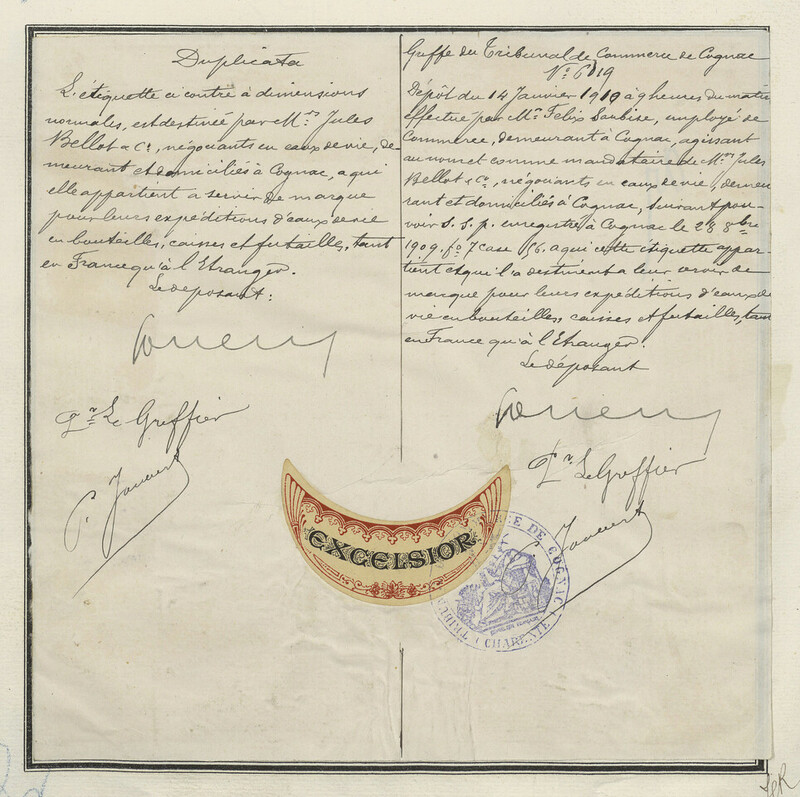 Duplicata
L'étiquette ci contre à dimensions
normales, est destinée par Mrs Jules
Bellot & Cie, négociants en eaux de vie, de-
meurant et domiciliés à Cognac, a qui
elle appartient a servir de marque
pour leurs expéditions d'eaux de vie
en bouteilles, caisses et futailles, tant
en France qu'à l'Etranger.
Le déposant:
pr Le Greffier
Greffe du Tribunal de Commerce de Cognac
No 6719
Dépôt du 14 Janvier 1910 à 9 heures du matin
effectué par Mr Felix Soubise, employé de
Commerce, demeurant à Cognac, agissant
au nom et comme mandataire de Mrs Jules
Bellot & Cie, négociants en eaux de vie, demeu
rant et domiciliés à Cognac, suivant pou-
voir s.s.p. enregistré à Cognac le 28 8bre
1909. fo 7 case 156. a qui cette étiquette appar-
tient et qui l'a destinent a leur servir de
marque pour leurs expéditions d'eaux de
vie en bouteilles, caisses et futailles, tant
en France qu'à l'Etranger.
Le déposant
Pr Le Greffier
EXCELSIOR
COGNAC
(CHARENTE)